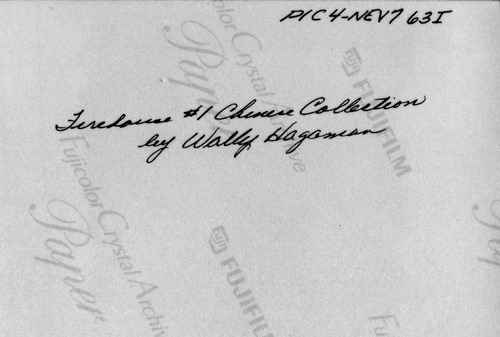 PIC 4-NEV7 63I
Firehouse #1 Chinese Collection
by Wally Hagaman
Fujicolor Crystal Archive
Paper
FUJIFILM
Fujicolor Crystal Archive
Paper
FUJIFILM
Fu